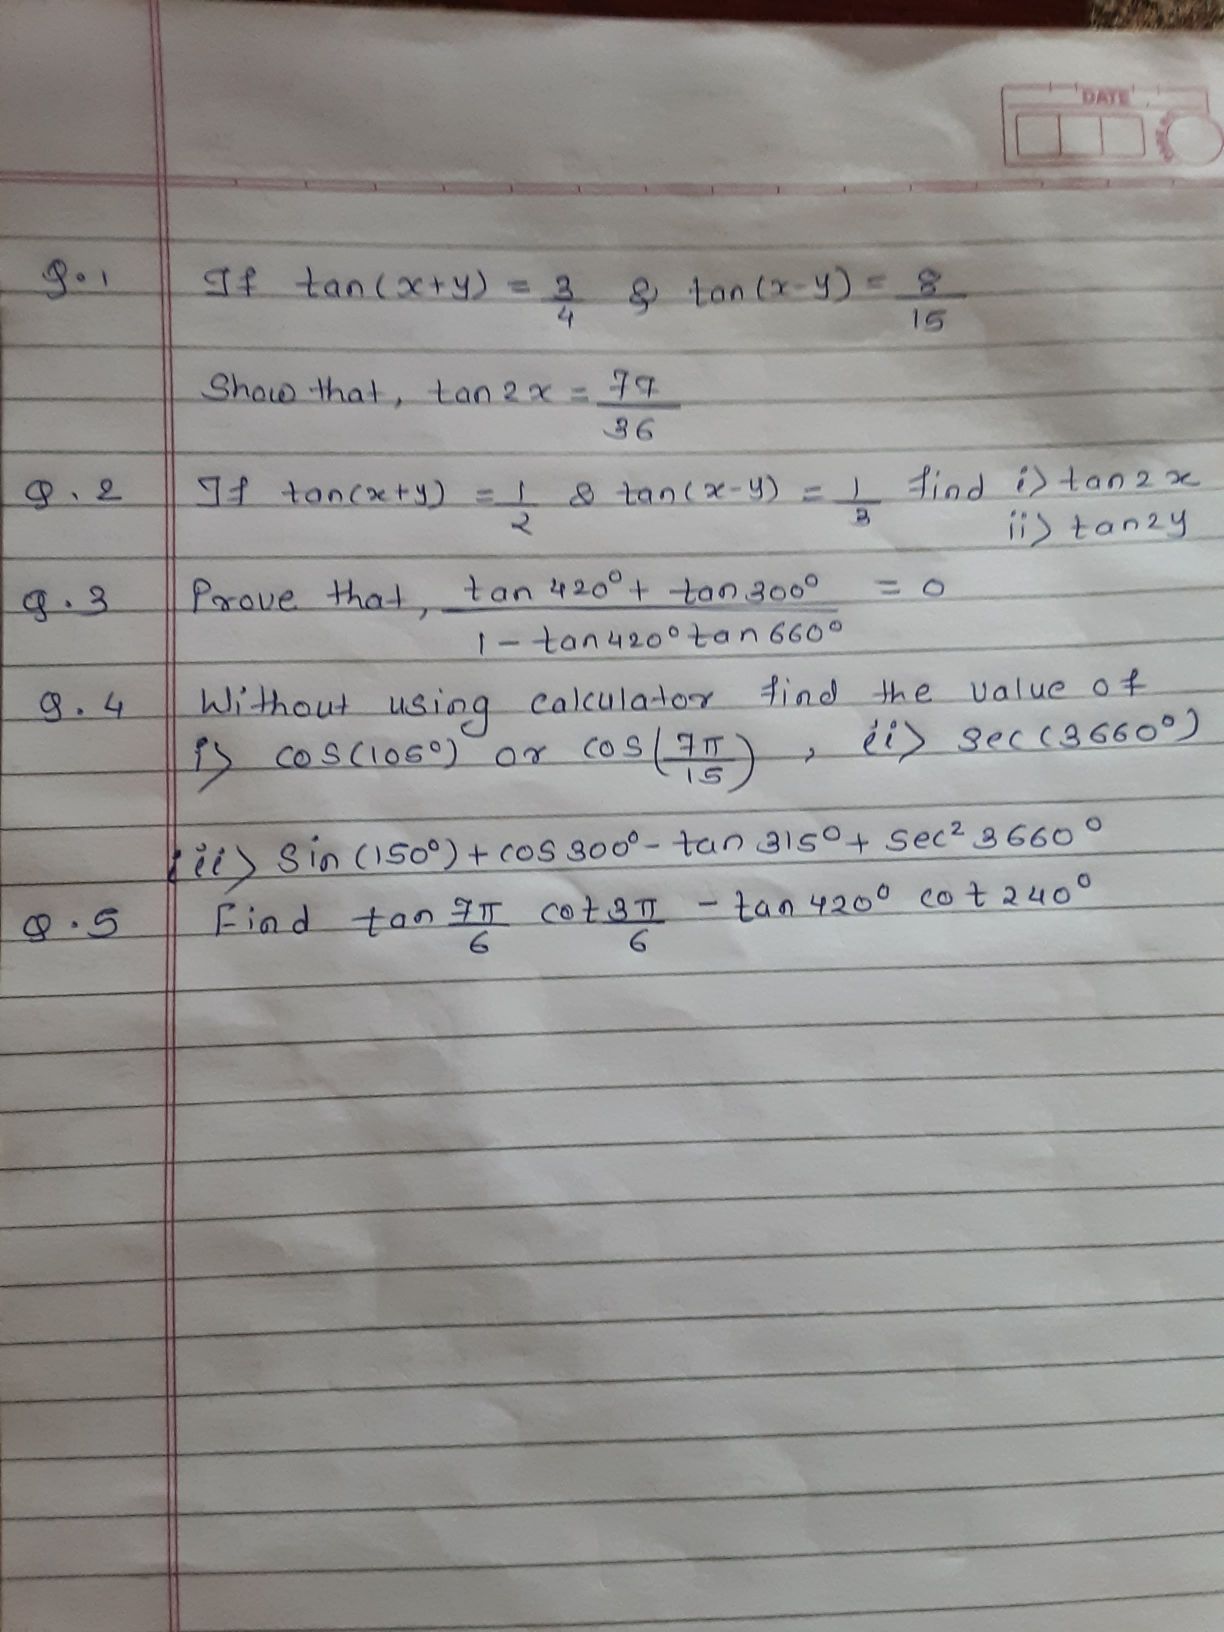 DATE
Q.1 If tan(x+y) = 3/4 & tan(x-y) = 8/15
Show that, tan2x = 77/36
Q.2 If tan(x+y) = 1/2 & tan(x-y) = 1/3 find i> tan2x
ii> tan2y
Q.3 Prove that, tan420°+ tan300° / 1-tan420°tan660° = 0
Q.4 Without using calculator find the value of
i> cos(105°) or cos(7π/15), ii> sec(3660°)
iii> Sin(150°)+cos300°-tan315°+sec²3660°
Q.5 Find tan 7π/6 cot 3π/6 - tan420° cot240°